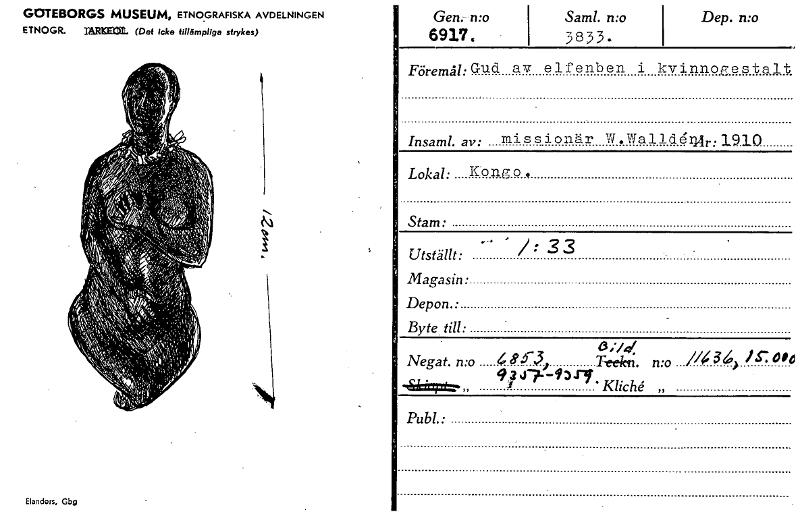 GÖTEBORGS MUSEUM, ETNOGRAFISKA AVDELNINGEN
ETNOGR. ARKEOL. (Det icke tillämpliga strykes)
12 cm.
Elanders, Gbg
Gen. n:o Saml. n:o Dep. n:o
6917. 3833.
Föremål: Gud av elfenben i kvinnogestalt
Insaml. av: missionär W.Walldén År: 1910
Lokal: Kongo.
Stam:
Utställt: 1:33
Magasin:
Depon.:
Byte till:
Bild.
Negat. n:o 6853, Teckn. n:o 11636, 15.000
„ 9357-9359. Kliché „
Publ.: